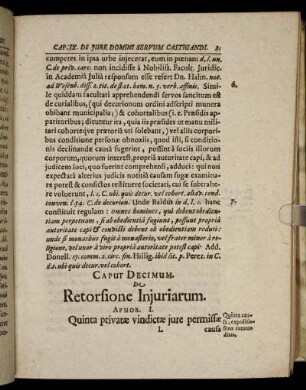 CAP. IX. DI JURE DOMINI SERVUM CASTIGANDI. 81
competes in ipsa urbe injecerat, eum in pœnam d. l. un.
C. de priv. carc. non incidisse à Nobiliss. Facult. Juridic.
in Academiâ Juliâ responsum esse refert Dn. Hahn. not.
ad Wesenb. diss. 2. tit. de stat. hom. n. 7. verb. affinis. Simi- 6.
le quiddam facultati apprehendendi servos sancitum est
de curialibus, (qui decurionum ordini adscripti munera
obibant municipalia;) & cohortalibus (i. e. Præsidis ap-
paritoribus; dicuntur ita, quia iis præsides ut manu mili-
tari cohorteque prætoriâ uti solebant,) vel aliis corporibus
conditione personæ obnoxiis, quod isti, si conditio-
nis declinandæ causâ fugerint, possint à sociis illorum
corporum, quorum interest, propriâ autoritate capi, & ad
judicem loci, quo fuerint comprehensi, adduci: qui non
expectatâ alterius judicis notitiâ causam fugæ examina-
re potest & convictos restituere societati, cui se subtrahe-
re voluerunt, l. 1. C. ubi quis de cur. vel cohort. aliaq. cond.
conven. l. 54. C. de decurion. Unde Baldus in d. l. 1. hanc 7.
constituit regulam: omnes homines, qui debent obedien-
tiam perpetuam, si ab obedientiâ fugiunt, possunt propriâ
autoritate capi & convicti debent ob obedientiam reduci:
unde si monachus fugit à monasterio, vel frater minor à re-
ligione, volunt à viro propriâ autoritate potest capi Add.
Donell. 17. comm. 2. circ. fin. Hillig. ibid lit. p. Perez. in C.
d. t. ubi quis de cur. vel cohort.
CAPUT DECIMUM.
De
Retorsione Injuriarum.
APHOR. I.
Quinta privatæ vindictæ jure permissæ
L causa
Quinta cau-
sa, expeditio-